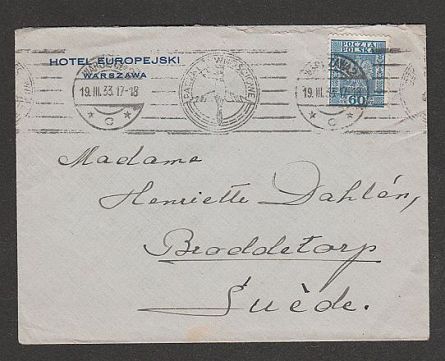 HOTEL EUROPEJSKI
WARSZAWA
19.III.33.17-18
* c *
19.III.33.17-18
* c *
POCZTA
POLSKA
60
Madame
Henriette Dahlén,
Broddetorp
Suède.